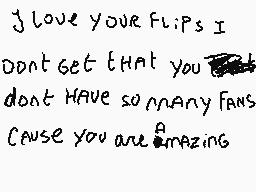 I love your flips I
Dont get that you
dont have so many fans
cause you are Amazing